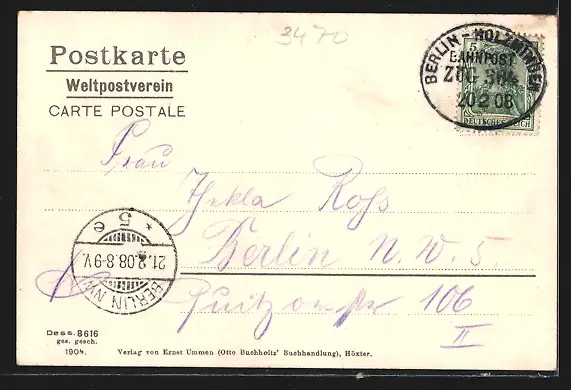 3470
Postkarte
Weltpostverein
CARTE POSTALE
BERLIN - HOLZMINDEN
BAHNPOST
ZUG 384
20 2 08
DEUTSCHES REICH
Frau
Thekla Roß
Berlin N. W. 5.
Quitzowstr 106
II
* 5 e
21.2.08.8-9V.
BERLIN NW
Dess. 8616
ges. gesch.
1904.
Verlag von Ernst Ummen (Otto Buchholtz' Buchhandlung), Höxter.